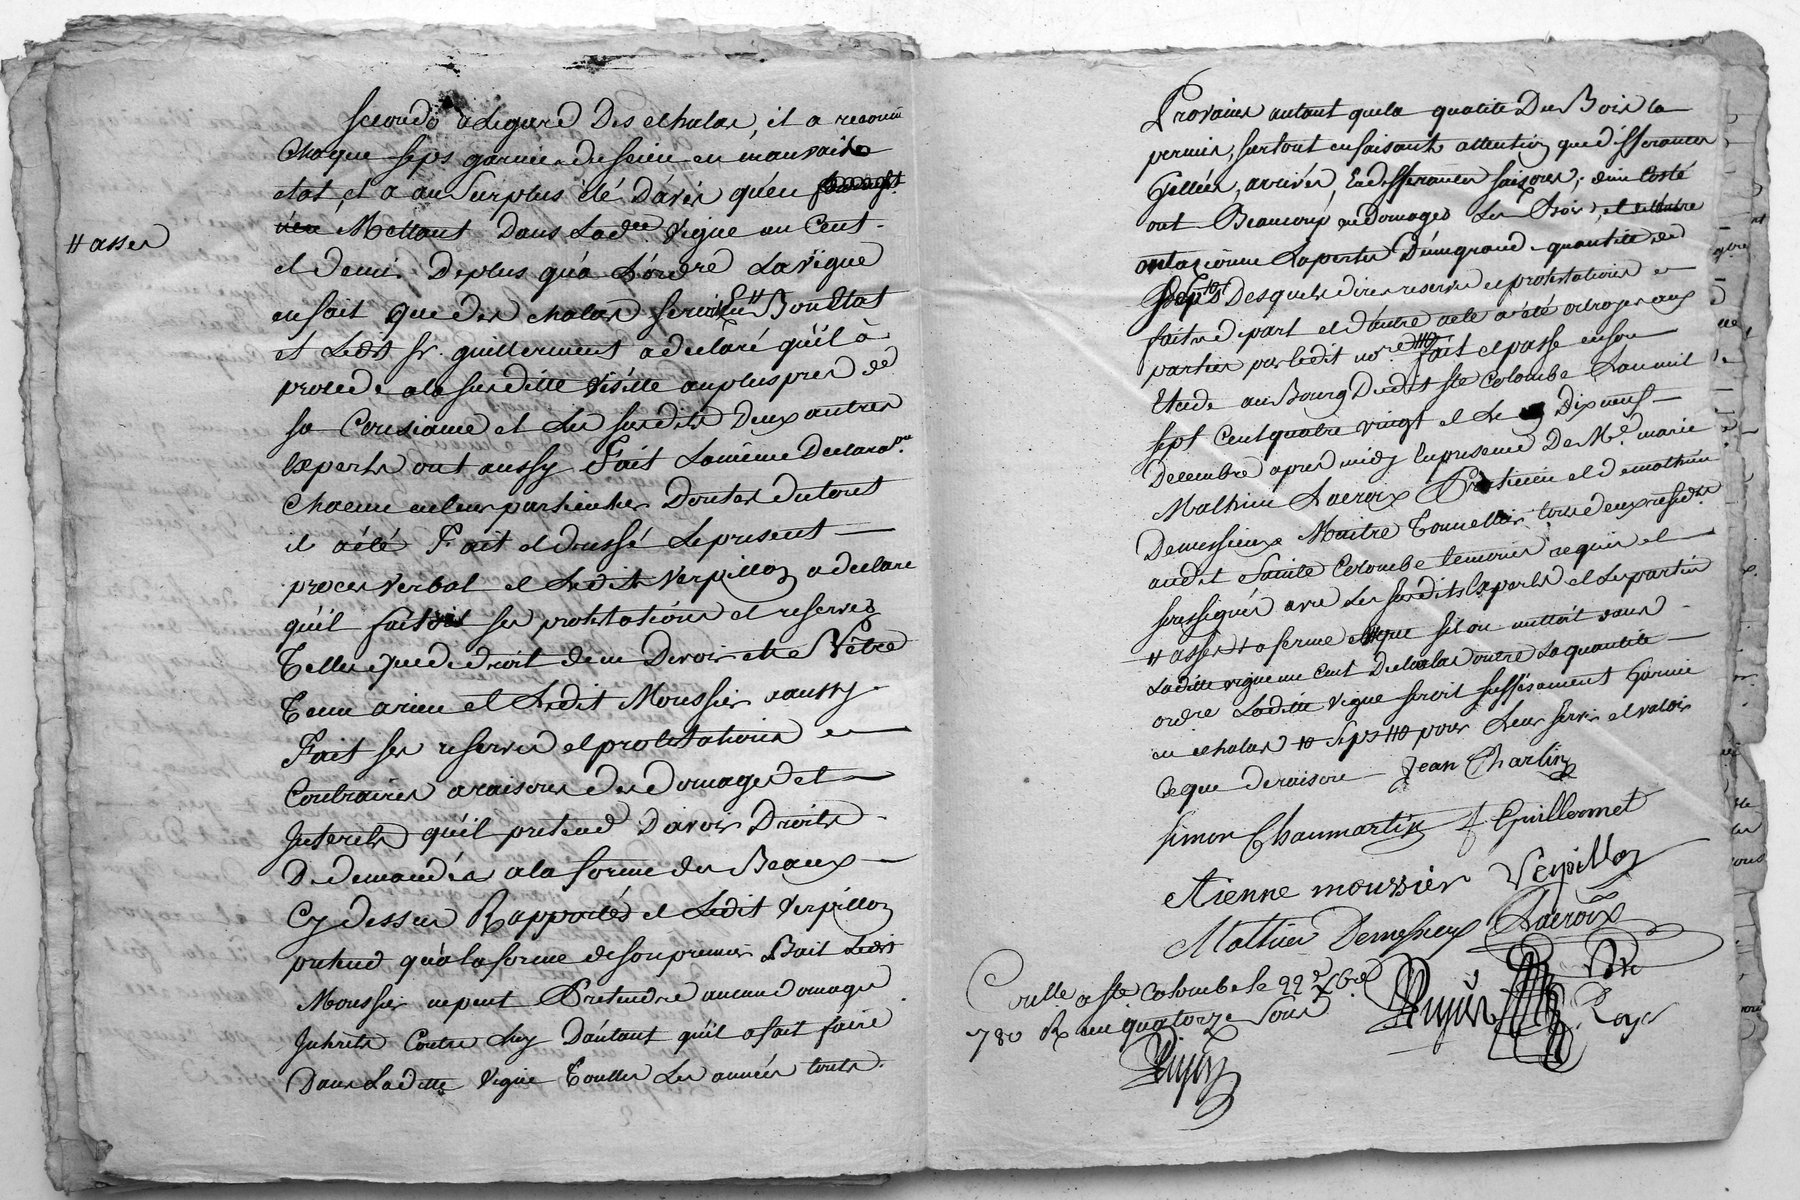 secondo a légard Des echalas, il a reconnu
Chaque seps garnie dessein en mauvaits
etat, et a au surplus été Davis qu'en
Mettant Dans Ladee vigne un Cent
# asses
et demi Deplus qua L'ordre La vigne
en fait que des echalas seroit En Bon Etat
et Ledit sr. guillermet a declaré qu'il à
procede a la susditte visitte au plus pres de
sa Consiance et Les susdits Deux autres
Experts ont aussy Fait Lamême Declaraon.
Chacun en leur particulier Dontes du tout
il a été Fait et dressé Le present
proces verbal et Ledit Verpilloz a declare
qu'il faisoit ses protestations et reserves
Telles que de droit de ne Devoir etre
Tenu a rien et Ledit Moussier a aussy
Fait ses reserves et protestations
Contraires a raisons des domages et
Interets qu'il pretend Davoir Droits
De demander a la forme des Beaux
Cy dessus Rapportés et Ledit Verpilloz
pretend qu'a la forme de son premier Bail Ledit
Moussier ne peut Pretendre aucun domage
Interets Contre Luy D'autant qu'il a fait faire
Dans Laditte vigne Touttes Les années touts
Provains autant que la qualité Du Bois la
permis, surtout en faisant attention que differantes
Gellées, arrivés, En differantes saisons, d'un Costé
ont Beaucoup endomagés Les Bois, et de l'autre
ont La perte D'une grande quantite de
Seps Desquels dires reserves et protestations
faits de part et d'autre acte a été octroyé aux
parties par ledit nore fait et passé en son
Etude au Bourg Dudit Ste Colombe L'an mil
sept Cent quatre vingt et Le Dix neuf
Decembre apres midy En presence De Me. marie
Mathieu Lacroix Praticien et de mathieu
Demessieux Maitre Tonnellier tous deux residts
audit Sainte Colombe temoins requis et
soussignés avec Les susdits Experts et Les parties
# asses ferme et que si l'on mettoit dans
Laditte vigne un Cent Dechalas outre La quantité
ordre Laditte vigne seroit suffisament Garnie
en echalas # seps # pour Leur servir et valoir
Ceque de raison Jean Charlin
Simon Chaumartin f Guillermet
Etienne moussier Verpilloz
Mathieu Demessieux Lacroix
Conlle a Ste. Colombe le 22 Xbre
780 R un quatorze Sous